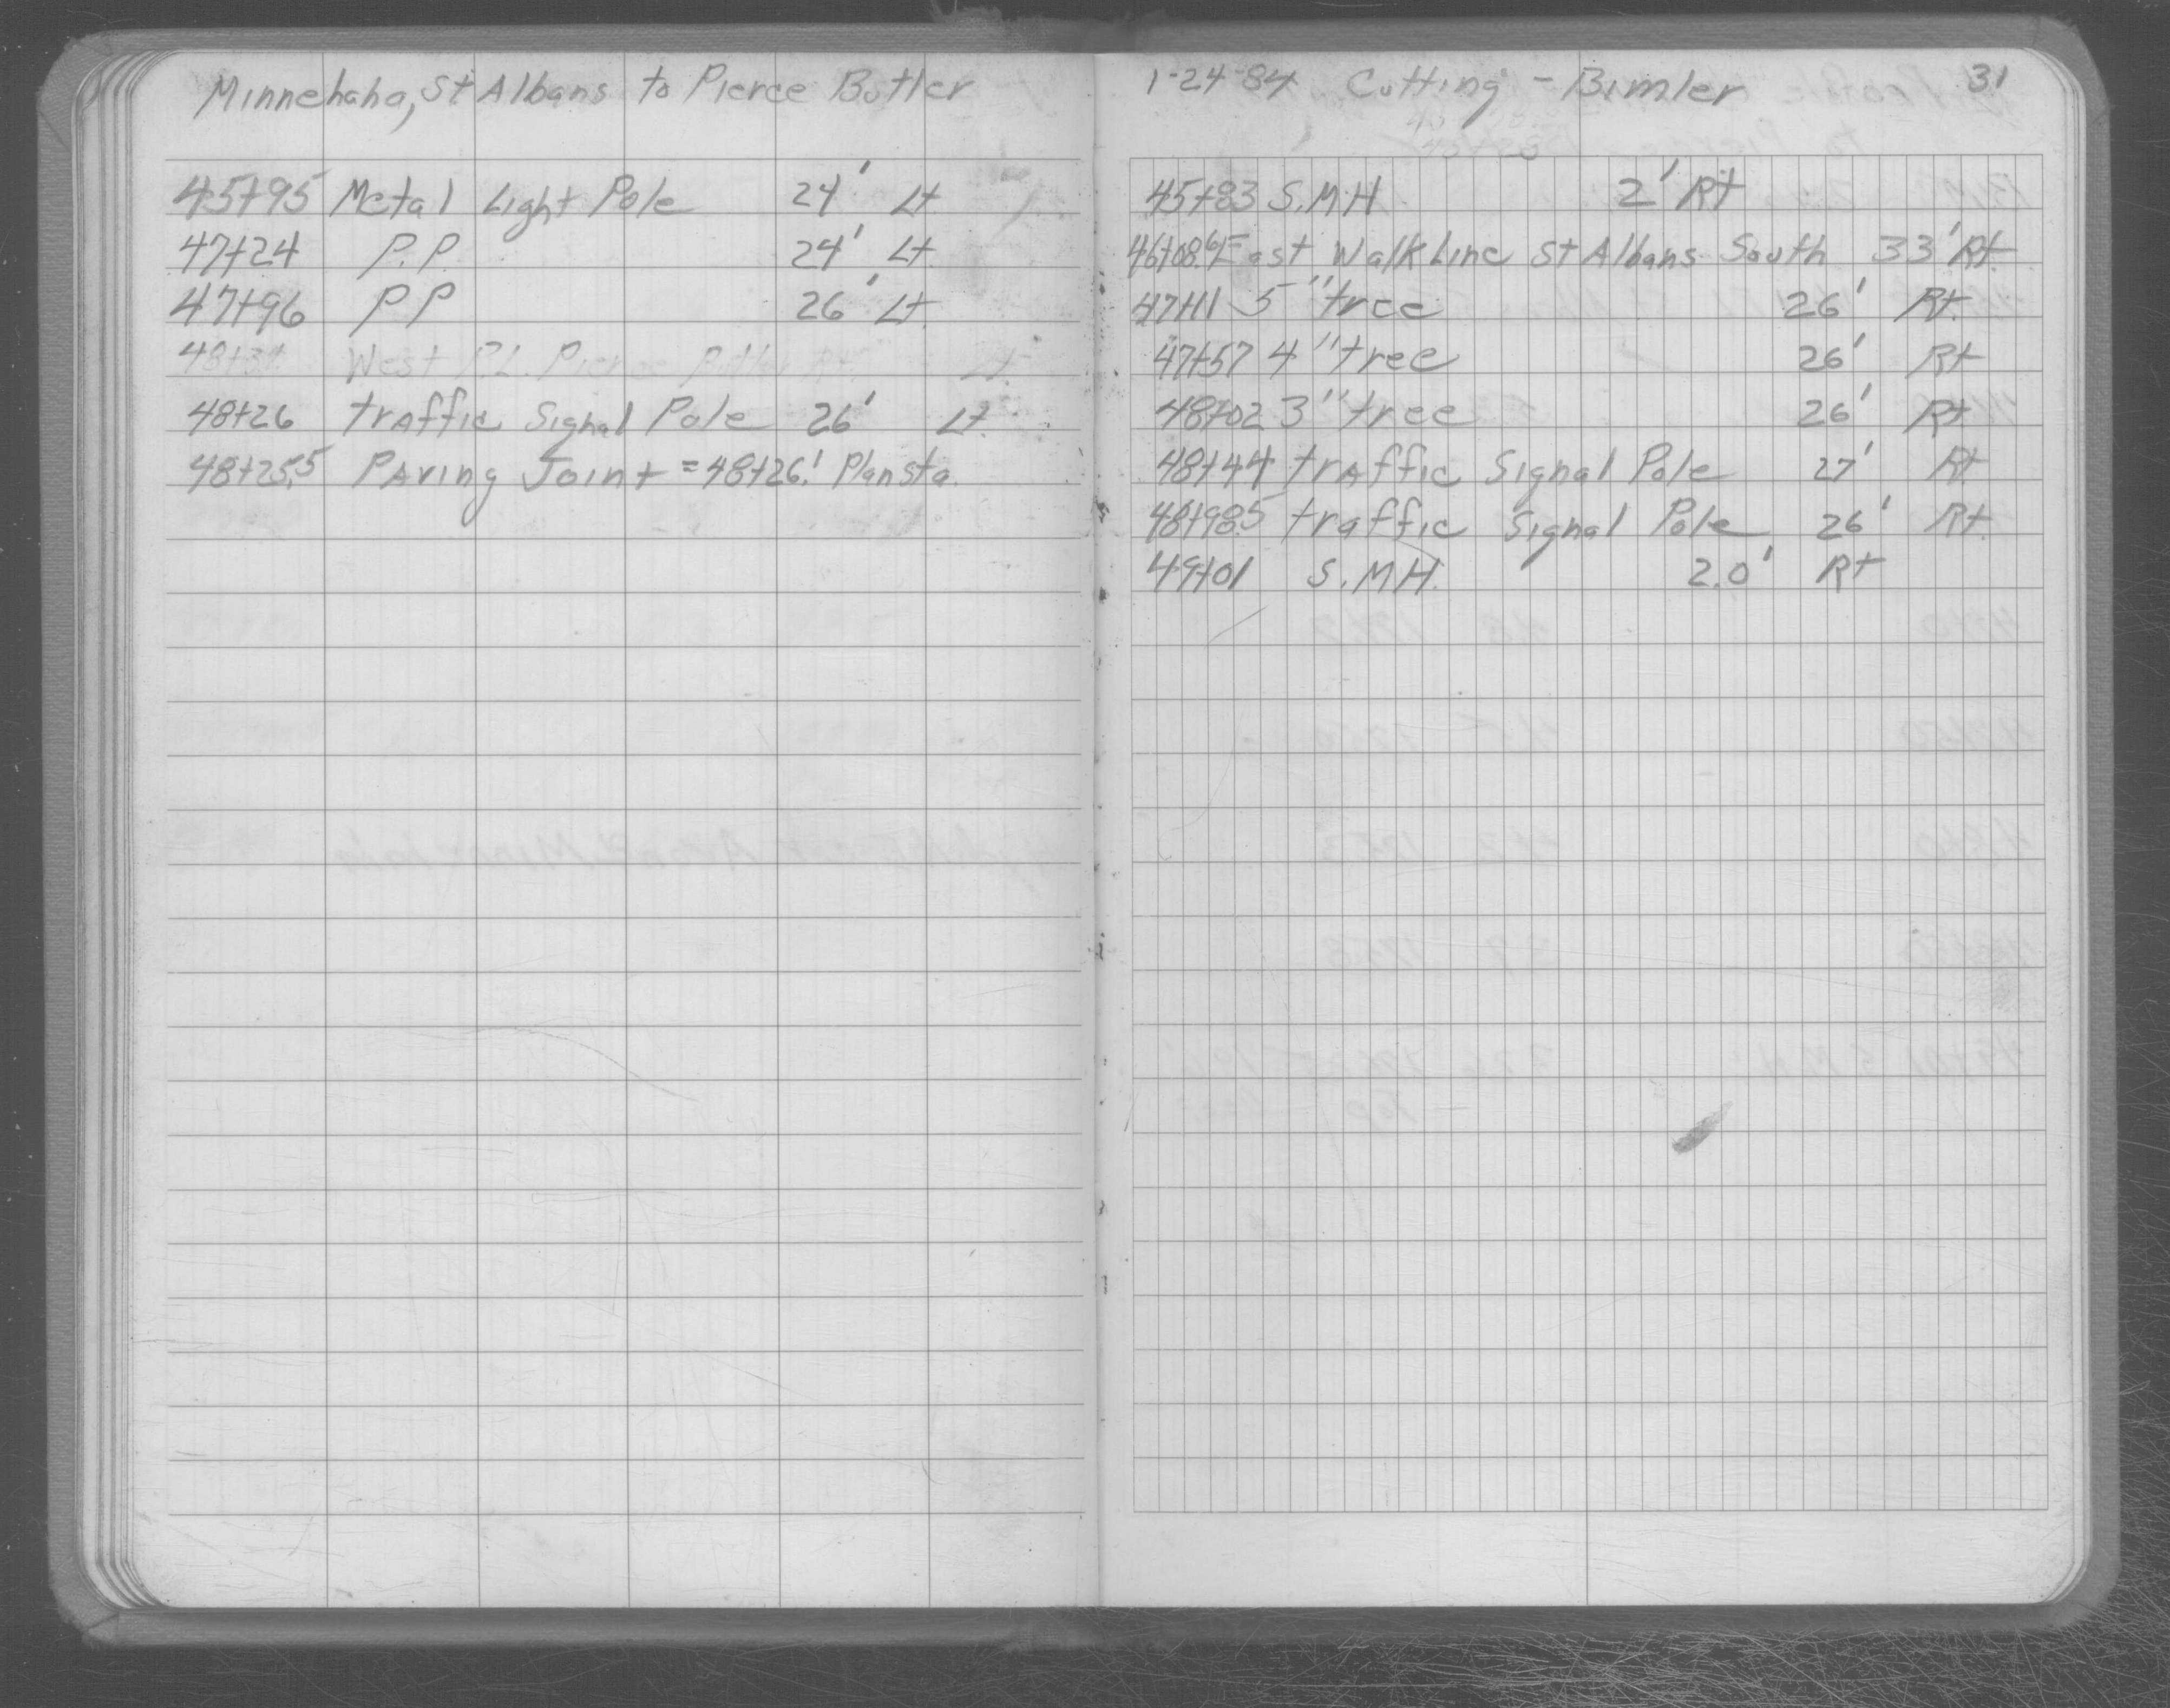 Minnehaha, St Albans to Pierce Butler
45+95 Metal Light Pole 24' Lt
47+24 P.P. 24' Lt.
47+96 PP 26' Lt.
West P.L. Pierce Butler Lt.
48+26 traffic Signal Pole 26' Lt.
48+25.5 Paving Joint = 48+26.1 Plan sta.
1-24-84 Cutting - Bimler 31
45+83 S.M.H 2' Rt
46+08.6 East Walk Line St Albans South 33' Rt.
47+11 5" tree 26' Rt.
47+57 4" tree 26' Rt
48+02 3" tree 26' Rt
48+44 traffic Signal Pole 27' Rt
48+98.5 traffic Signal Pole 26' Rt.
49+01 S.M.H. 2.0' Rt